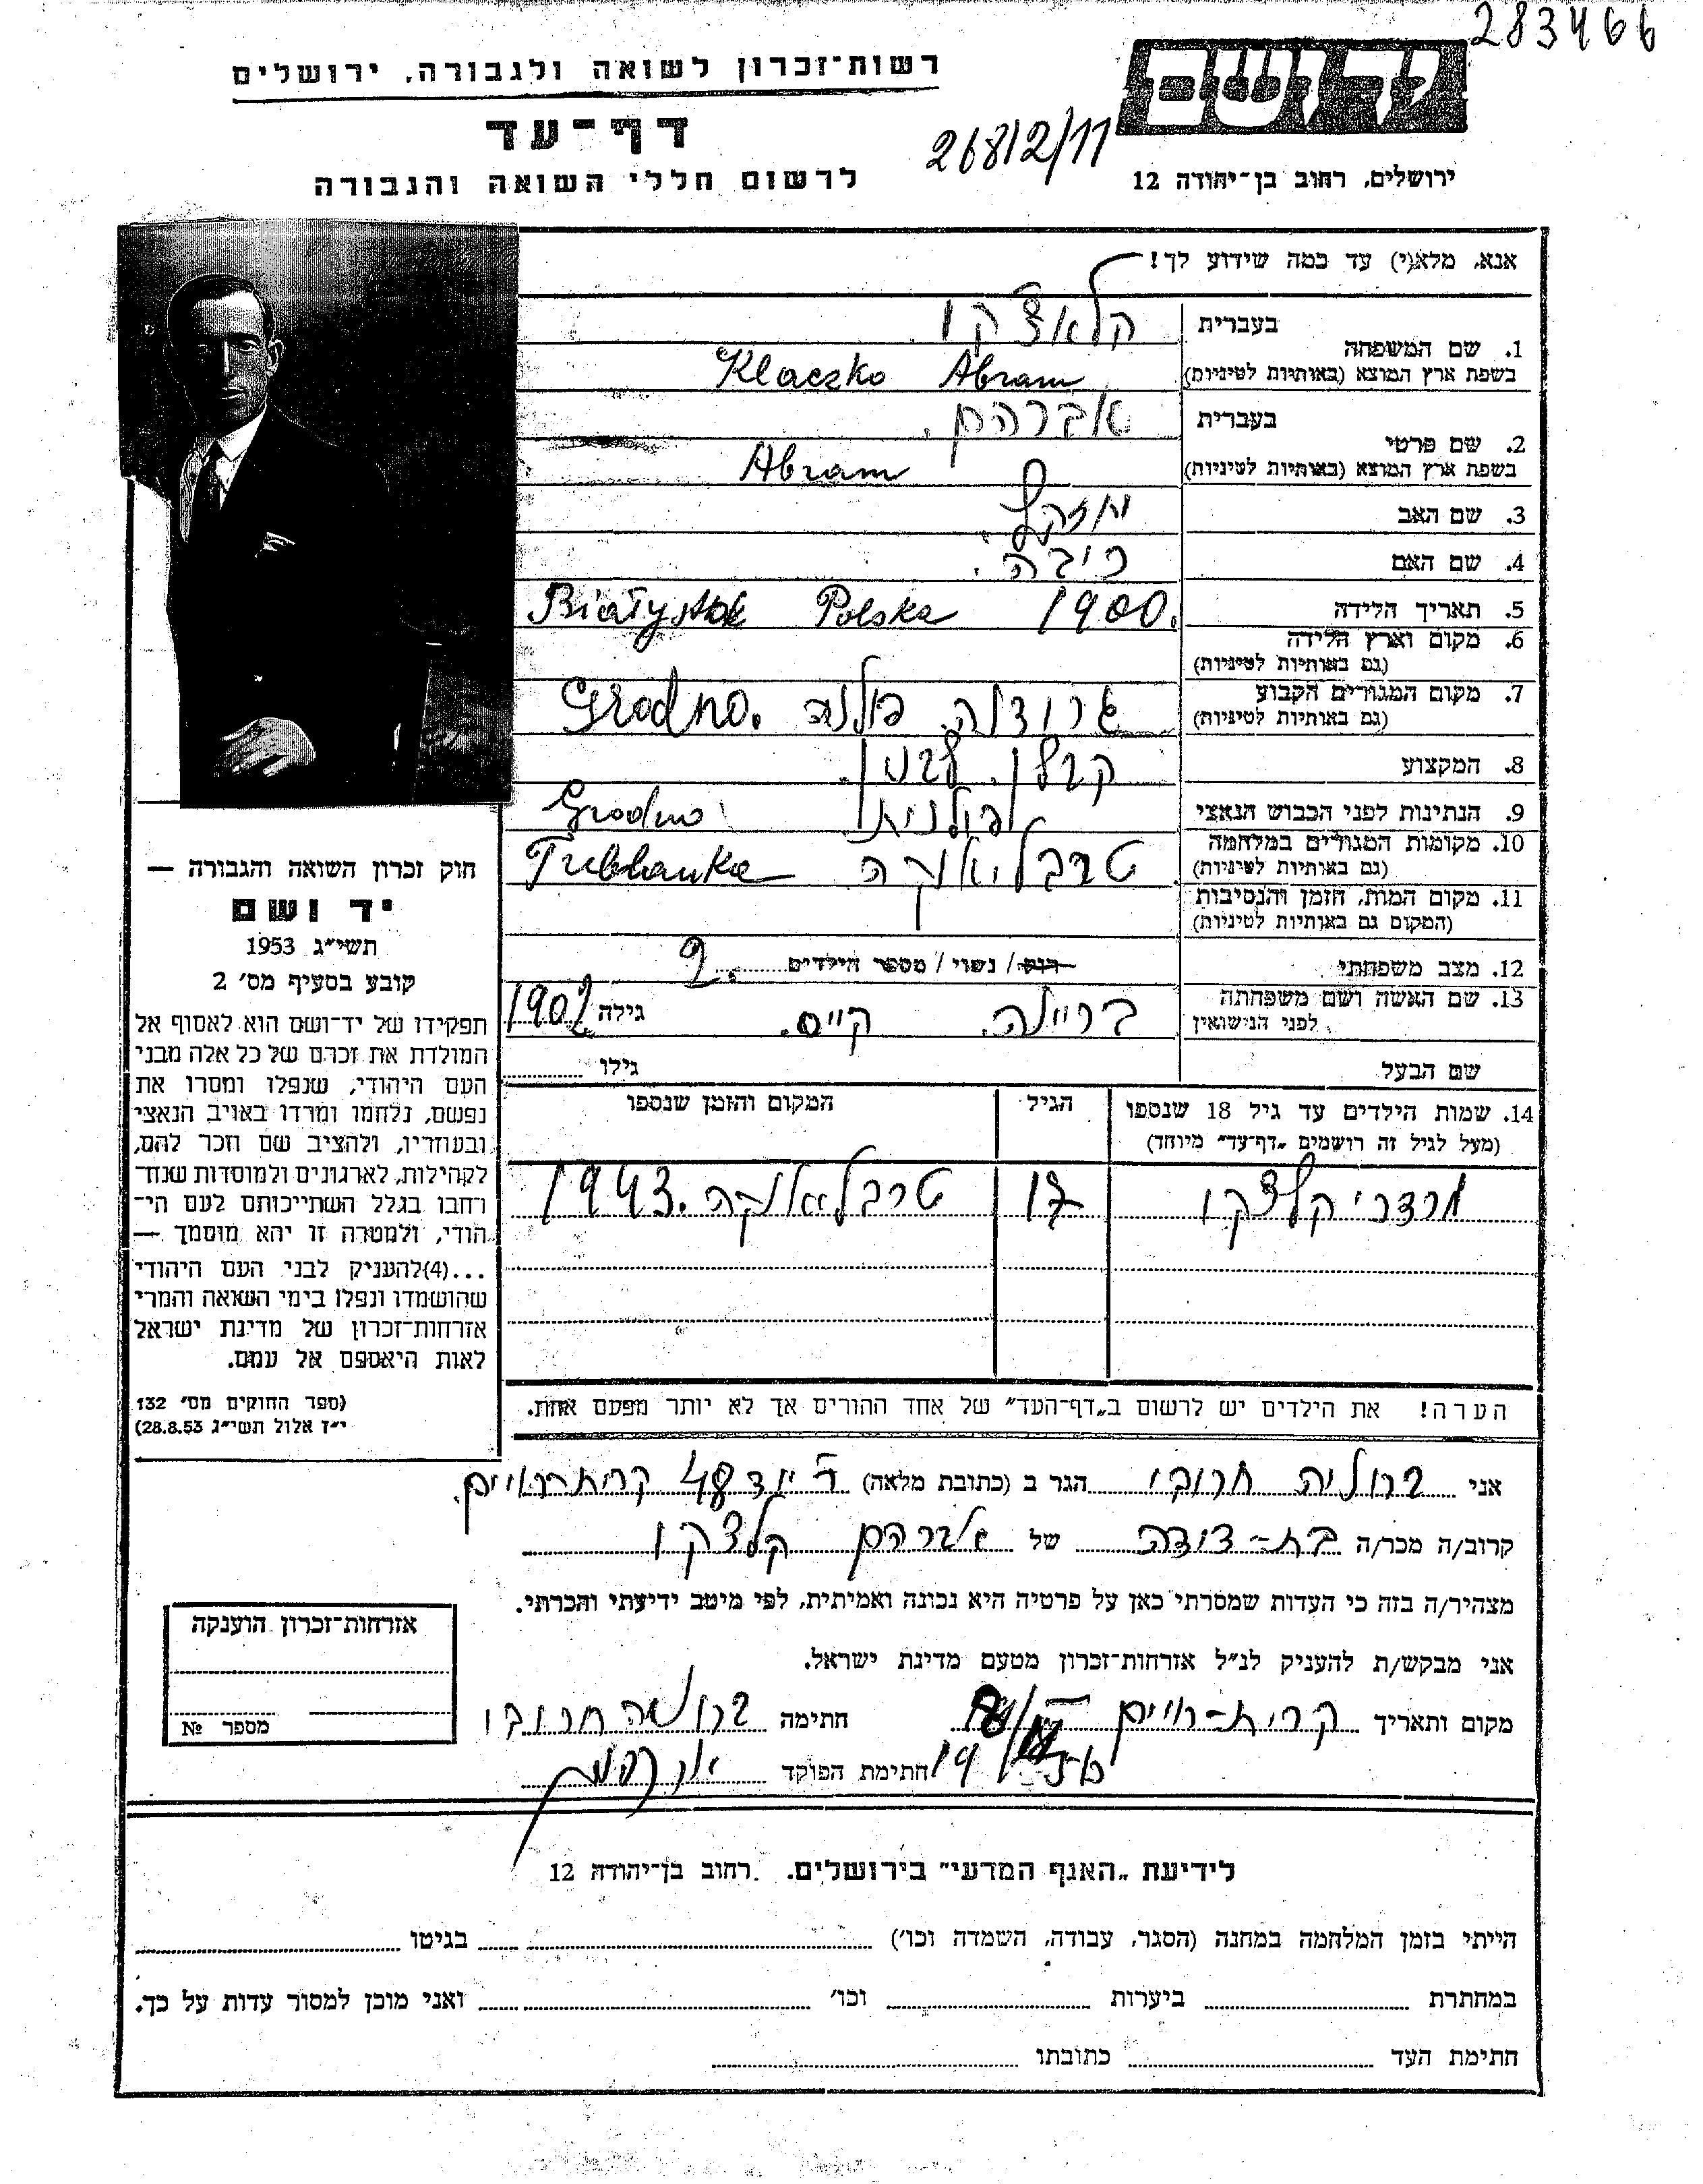 283466
רשות־זכרון לשואה ולגבורה, ירושלים
דף־עד
268/2/11
לרשום חללי השואה והגבורה
ירושלים, רחוב בן־יהודה 12
אנא, מלא(י) עד כמה שידוע לך!
1. שם המשפחה בעברית קלאצקו
בשפת ארץ המוצא (באותיות לטיניות) Klaczko Abram
2. שם פרטי בעברית אברהם.
בשפת ארץ המוצא (באותיות לטיניות) Abram
3. שם האב
4. שם האם
5. תאריך הלידה 1900.
6. מקום וארץ הלידה Białystok Polska
(גם באותיות לטיניות)
7. מקום המגורים הקבוע גרודנה. פולניה Grodno.
(גם באותיות לטיניות)
8. המקצוע קבלן.
9. הנתינות לפני הכבוש הנאצי פולנית
10. מקומות המגורים במלחמה Grodno
(גם באותיות לטיניות)
11. מקום המות, הזמן והנסיבות טרבליאנקה Treblanka
(המקום גם באותיות לטיניות)
12. מצב משפחתי רוק / נשוי / מספר הילדים 2.
13. שם האשה ושם משפחתה בריינה. קייס. גילה 1902
לפני הנישואין
שם הבעל גילו
14. שמות הילדים עד גיל 18 שנספו הגיל המקום והזמן שנספו
(מעל לגיל זה רושמים „דף־עד״ מיוחד)
מרדכי קלצקו 17 טרבלאנקה. 1943
הערה! את הילדים יש לרשום ב„דף־העד״ של אחד ההורים אך לא יותר מפעם אחת.
חוק זכרון השואה והגבורה —
יד ושם
תשי״ג 1953
קובע בסעיף מס׳ 2
תפקידו של יד־ושם הוא לאסוף אל
המולדת את זכרם של כל אלה מבני
העם היהודי, שנפלו ומסרו את
נפשם, נלחמו ומרדו באויב הנאצי
ובעוזריו, ולהציב שם וזכר להם,
לקהילות, לארגונים ולמוסדות שנח־
רחבו בגלל השתייכותם לעם הי־
הודי, ולמטרה זו יהא מוסמך —
...(4) להעניק לבני העם היהודי
שהושמדו ונפלו בימי השואה והמרי
אזרחות־זכרון של מדינת ישראל
לאות היאספם אל עמם.
(ספר החוקים מס׳ 132
י״ז אלול תשי״ג 28.8.53)
אני ברוליה חרובי הגר ב (כתובת מלאה) 48 קרית־חיים.
קרוב/ה מכר/ה בת־דודה של אברהם קלצקו
מצהיר/ה בזה כי העדות שמסרתי כאן על פרטיה היא נכונה ואמיתית, לפי מיטב ידיעתי והכרתי.
אני מבקש/ת להעניק לנ״ל אזרחות־זכרון מטעם מדינת ישראל.
מקום ותאריך קרית־חיים חתימה חרובי
חתימת הפוקד
אזרחות־זכרון הוענקה
מספר №
לידיעת „האגף המדעי״ בירושלים. רחוב בן־יהודה 12
הייתי בזמן המלחמה במחנה (הסגר, עבודה, השמדה וכו׳) בגיטו
במחתרת ביערות וכו׳ ואני מוכן למסור עדות על כך.
חתימת העד כתובתו